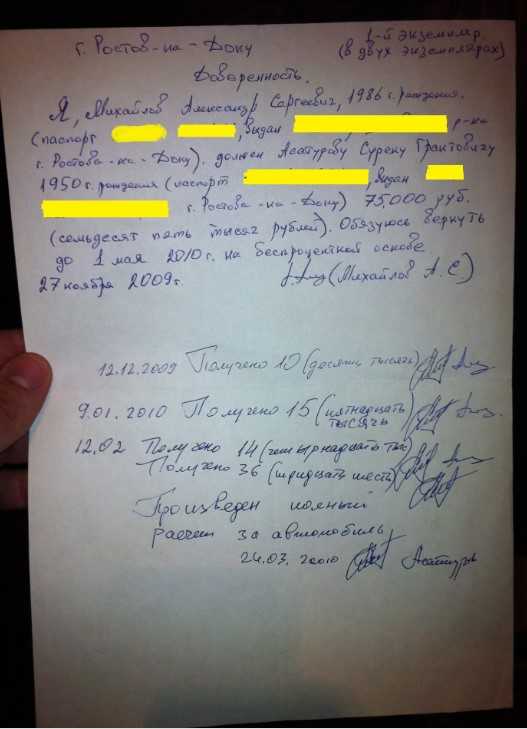 г. Ростов-на-Дону
1-й экземпляр.
(в двух экземплярах)
Доверенность.
Я, Михайлов Александр Сергеевич, 1986 г. рождения.
(паспорт , выдан р-на
г. Ростова-на-Дону). должен Асатурову Сурену Грантовичу
1950 г. рождения (паспорт , выдан
г. Ростова-на-Дону) 75000 руб.
(семьдесят пять тысяч рублей). Обязуюсь вернуть
до 1 мая 2010 г. на беспроцентной основе.
27 ноября 2009 г. (Михайлов А. С)
12.12.2009 Получено 10 (десять тысячь)
9.01.2010 Получено 15 (пятнадцать
тысячь
12.02 Получено 14 (четырнадцать тыс)
Получено 36 (тридцать шесть)
Произведен полный
расчет за автомобиль
24.03.2010 Асатуров